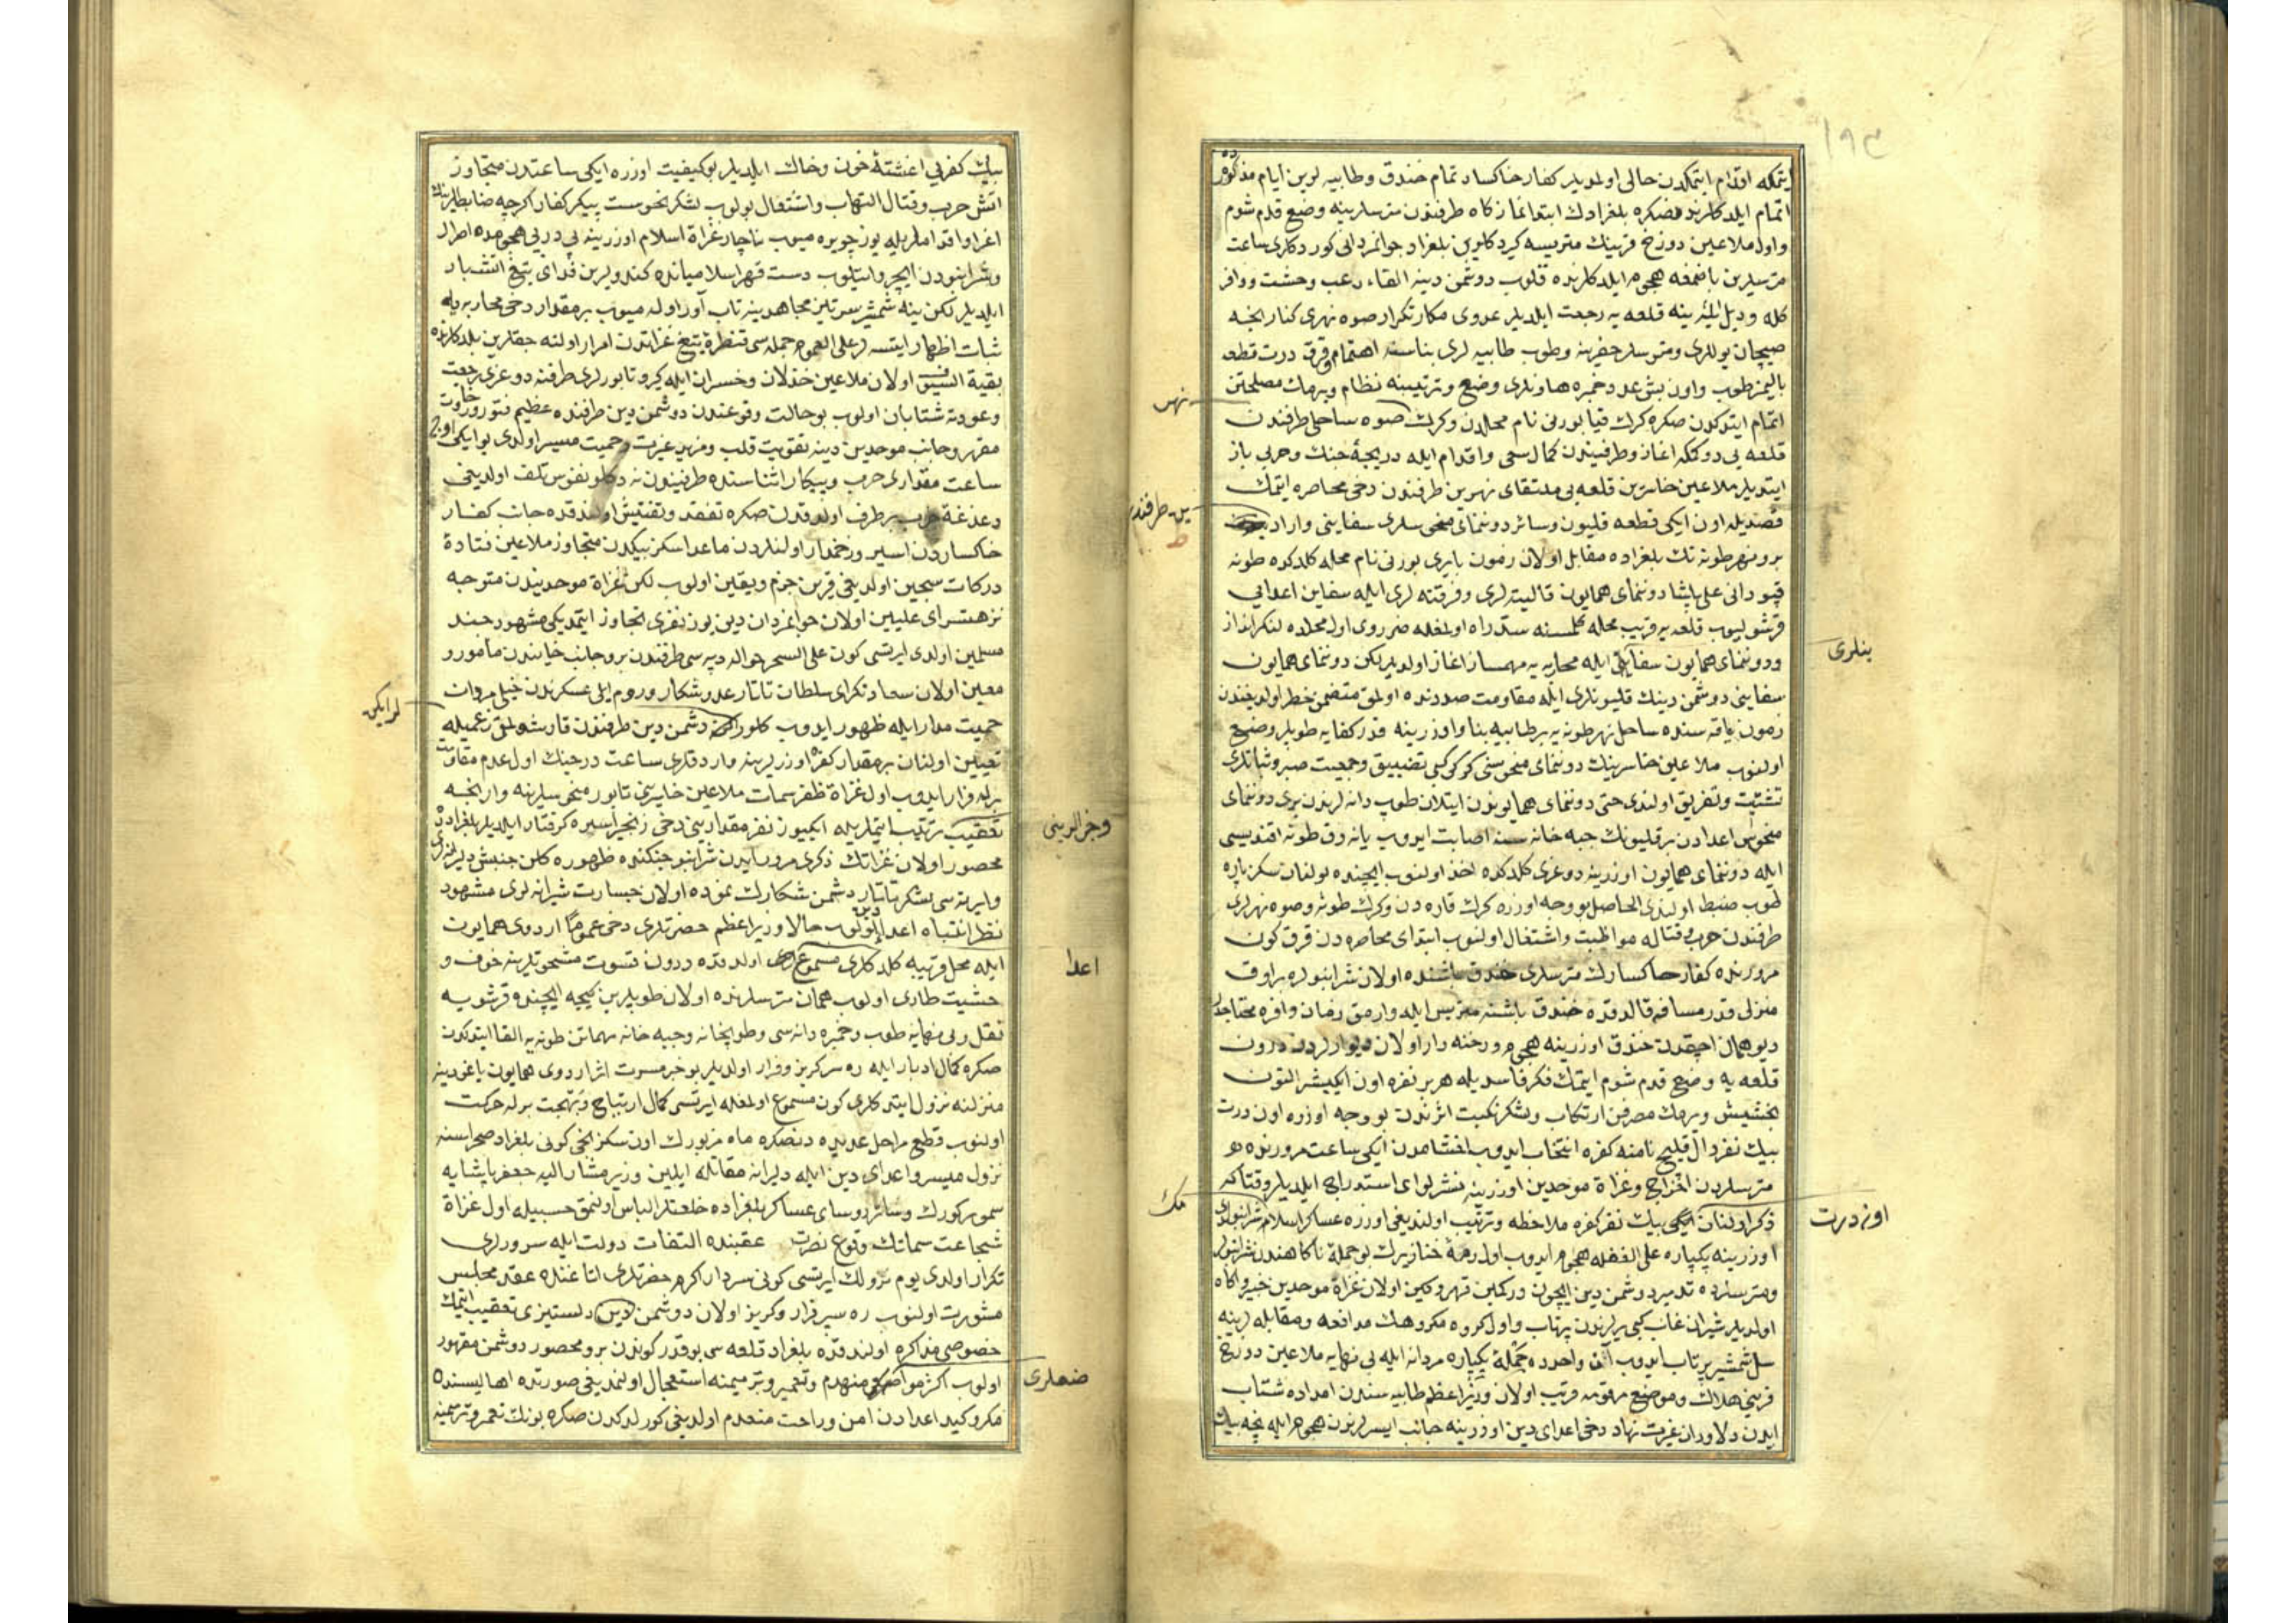 ایتمکه اقدام ایتمکدن حالی اولمدیلر کفار خاکسار تمام خندق وطابیه لرین ایام مذکورده
اتمام ایلدکلرندنصکره بلغرادك ابتدا نمازکاه طرفندن مترسلرینه وضع قدم شوم
واول ملاعین دوزخ قرینك متریسه کیردکلرین بلغراد جوانمردانی کوردکلری ساعت
مترسلرین هجوم ایلدکلرنده قلوب دوشمن دینه القاء رعب وحشت ووافر
کله ودیل ینه قلعه یه رجعت ایلدیلر عدوی مکار تکرار صوه نهری کنار
صیچان یوللری ومترسلر حفرینه وطوب طابیه لری بناسنه اهتمام وقرق درت قطعه
بالیمز طوب واون بش عدد خمبره هاونلری وضع وترتیبنه نظام ویرمك مصلحتین
نهر
اتمام ایتدکدن صکره کرك قیا بورنی نام محلدن وکرك صوه ساحلی طرفندن
قلعه یی دوکمکه اغاز وطرفیندن کمال سعی واقدام ایله دریچۀ جنك وحربی باز
ایتدیلر ملاعین خاسرین قلعه یی ملتقای نهرین طرفندن دخی محاصره ایتمك
ین طرفندن
قصدیله اون ایکی قطعه قلیون وسائر دوننمای منحوسلری سفاینی
برو نهر طونه نك بلغراده مقابل اولان زمون بایری بورنی نام محله کلدکده طونه
قپودانی علی پاشا دوننمای همایون قالیته لری وفرقته لری ایله سفاین اعدایی
قرشولیوب قلعه یه قریب محله کلمسنه سد راه اولمغله ضروری اول محلده لنکرانداز
ینلری
ودوننمای همایون سفاینی ایله محاربه یه مهمساز اغاز اولدیلر لکن دوننمای همایون
سفاینی دوشمن دینك قلیونلری ایله مقاومت صددنده اولمق متضمن خطر اولدیغندن
زمون یاقه سنده ساحل نهر طونه یه بر طابیه بنا واوزرینه قدر کفایه طوپلر وضع
اولنوب ملاعین خاسرینك دوننمای منحوسنی کرك کبی تضییق وجمعیت صبر وثباتلری
تشتیت وتفریق اولندی حتی دوننمای همایوندن ایتلان طوپ دانه لرندن بری دوننمای
منحوس اعدادن بر قلیونك جبه خانه سنه اصابت ایدوب یانه رق طونه اقندیسی
ایله دوننمای همایون اوزرینه دوغری کلدکده اخذ اولنوب ایچنده بولنان سکز پاره
طوب ضبط اولندی الحاصل بو وجه اوزره کرك قاره دن وکرك طونه وصوه نهرلری
طرفندن حرب وقتاله مواظبت واشتغال اولنوب ابتدای محاصره دن قرق کون
مرورنده کفار خاکسارك مترسلری خندق باشنده اولان شرانپوره بر اوق
منزلی قدر مسافه قالدقده خندق باشنه متریس ایله وارمق زمان وافره محتاجدر
دیو همان اچقدن خندق اوزرینه هجوم ورخنه دار اولان دیوارلردن درون
قلعه یه وضع قدم شوم ایتمك فکر فاسدیله هر بر نفره اون ایکیشر التون
بخشیش ویرمك مصرفن ارتکاب ولشکر نکبت اثرندن بو وجه اوزره اون درت
بیك نفر دال قلیچ نامنه کفره انتخاب ایدوب اخشامدن ایکی ساعت مرورنده
مترسلردن اخراج وغزاة موحدین اوزرینه نشر لوای استدراج ایلدیلر وقتاکه
اون درت
مك
ذکر اولنان بیك نفر کفره ملاحظه وترتیب اولندیغی اوزره عساکر اسلام شرانپولری
اوزرینه یکپاره علی الغفله هجوم ایدوب اول رمۀ خنازیرك بو حملۀ ناکاهندن
ومترسلرده تدمیر دوشمن دین ایچون درکمین قهر وکین اولان غزاة موحدین خبیر واکاه
اولدیلر شیران غاب کبی یرلرندن پرتاب واول کروه مکروهك مدافعه ومقابله لرینه
سل شمشیر پرتاب ایدوب آن واحدده حملۀ یکپاره مردانه ایله بی نهایه ملاعین دوزخ
قرینی هلاك وموضع مرقومه قریب اولان وزیر اعظم طابیه سندن امداده شتاب
ایدن دلاوران غیرت نهاد دخی اعدای دین اوزرینه جانب ایسرلرندن هجوم ایله نیچه بیك
بیك کفره یی اغشتۀ خون وخاك ایلدیلر بو کیفیت اوزره ایکی ساعتدن متجاوز
آتش حرب وقتال التهاب واشتعال بولوب لشکر نحوست پیکر کفار کرچه ضابطلرینك
اغرا واقداملریله یوز چویره میوب ناچار غزاة اسلام اوزرینه پی درپی هجومده اصرار
وشرانپودن ایچرو اتیلوب دست قهر اسلامیانده کندولرین فدای تیغ اتشبار
ایلدیلر لکن ینه شمشیر سرتیز مجاهدینه تاب آور اوله میوب بر مقدار دخی محاربه یله
ثبات اظهار ایتسه لر علی العموم جمله سی قنطرۀ تیغ غزاتدن امرار اولنه جقلرین بلدکلرنده
بقیة السیف اولان ملاعین خذلان وخسران ایله کیرو تابورلری طرفنه دوغری رجعت
وعودته شتابان اولوب بو حالت وقوعندن دوشمن دین طرفنده عظیم فتور ورخاوت
مقرر وجانب موحدین دینه تقویت قلب ومزید غیرت وحمیت میسر اولدی بو ایکی اوچ
ساعت مقداری حرب وپیکار اثناسنده طرفیندن نه دکلو نفوس تلف اولدیغنی
دغدغۀ حرب برطرف اولدقدن صکره تفقد وتفتیش اولندقده جانب کفار
خاکساردن اسیر وزخمدار اولنلردن ماعدا سکز بیکدن متجاوز ملاعین فتادۀ
درکات سجین اولدیغی قرین جزم ویقین اولوب لکن غزاة موحدیندن متوجه
نزهتسرای علیین اولان جوانمردان دین یوز نفری تجاوز ایتمدیکی مشهور جند
مسلمین اولدی ایرتسی کون علی السحر حواله دپه سی طرفندن برو جانب خایندن مأمور و
معین اولان سعادتکرای سلطان تاتار عدوشکار وروم ایلی عسکرندن خیلی مردان
لر ایکن
حمیت مدار ایله ظهور ایدوب کلورلر دشمن دین طرفندن قارشولمق زعمیله
تعیین اولنان بر مقدار کفره اوزرلرینه واردقلری ساعت درجنك اول عدم مقاومت
برله فرار ایدوب اول غزاة ظفر سمات ملاعین خاسرین تابور منحوسلرینه وارنجه
وخزالدینی
تعقیب ترتیب ایتملریله ایکیوز نفر مقدارینی دخی زنجیر اسیره کرفتار ایلدیلر بلغرادده
محصور اولان غزاتك ذکری مرور ایدن شرانپو جنکنده ظهوره کلن جنبش دلیرانه لری
وایرته سی لشکر تاتار دشمن شکارك نموده اولان جسارت شیرانه لری مشهود
نظر انتباه اعدای دین اولوب حالا وزیر اعظم حضرتلری دخی عموماً اردوی همایون
اعدا
ایله محل قریبه کلدکلری مسموع اولدقده درون قسوت مشحونلرینه خوف و
خشیت طاری اولوب همان مترسلرنده اولان طوپلرین کیجه ایچنده قرشویه
نقل وبی نهایه طوب وخمبره دانه سی وطوپخانه وجبه خانه مهماتن طونه یه القا ایتدکدن
صکره کمال ادبار ایله ره سر کریز وفرار اولدیلر بو خبر مسرت اثر اردوی همایون یاغودینه
منزلنه نزول ایتدکلری کون مسموع اولمغله ایرتسی کمال ارتیاح وبهجت برله حرکت
اولنوب قطع مراحل عدیده دنصکره ماه مزبورك اون سکزنجی کونی بلغراد صحراسنه
نزول میسر واعدای دین ایله دلیرانه مقاتله ایلین وزیر مشار الیه جعفر پاشایه
سمور کورك وسائر روسای عساکر بلغراده خلعتلر الباس اولنمق حسبیله اول غزاة
شجاعت سماتك وقوع نصرت عقبنده التفات دولت ایله سرورلری
تکرار اولدی یوم نزولك ایرتسی کونی سردار اکرم حضرتلری اتاغنده عقد مجلس
مشورت اولنوب ره سپر فرار وکریز اولان دوشمن دین دلستیزی تعقیب ایتمك
خصوصی مذاکره اولندقده بلغراد قلعه سی بو قدر کوندن برو محصور دوشمن مقهور
ضعلری
اولوب اکثر مواضعی منهدم وتعمیر وترمیمنه استعجال اولنمدیغی صورتده اهالیسنده
مکر وکید اعدادن امن وراحت منعدم اولدیغی کورلدکدن صکره بونك تعمیر وترمیمنه